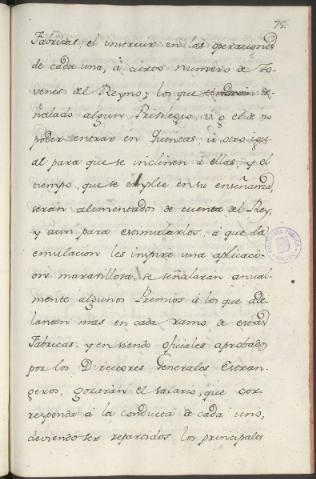 75.
Fabricas, el instruir en las operaciones
de cada una, à cierto numero de Jo-
venes del Reyno; los que se-
ñalado algun Privilegio, ù ó el de no
poder entrar en Quintas, ù otro igu-
al para que se inclinen à ellas, y el
tiempo, que se emplee en su enseñanza,
serán alimentados de cuenta del Rey,
y aun para estimularlos, à que la
emulacion les inspire una aplicaci-
on maravillosa, se señalarán anual-
mente algunos Premios à los que ade-
lanten mas en cada ramo de estas
Fabricas: y en siendo oficiales aprobados
por los Directores Generales Estran-
geros, gozarán el salario, que cor-
responda à la conducta de cada uno,
deviendo ser repartidos los principales